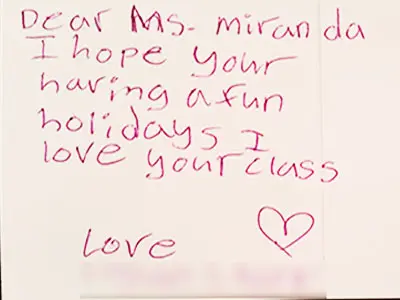 Dear Ms. miranda
I hope your
having a fun
holidays I
love your class
Love